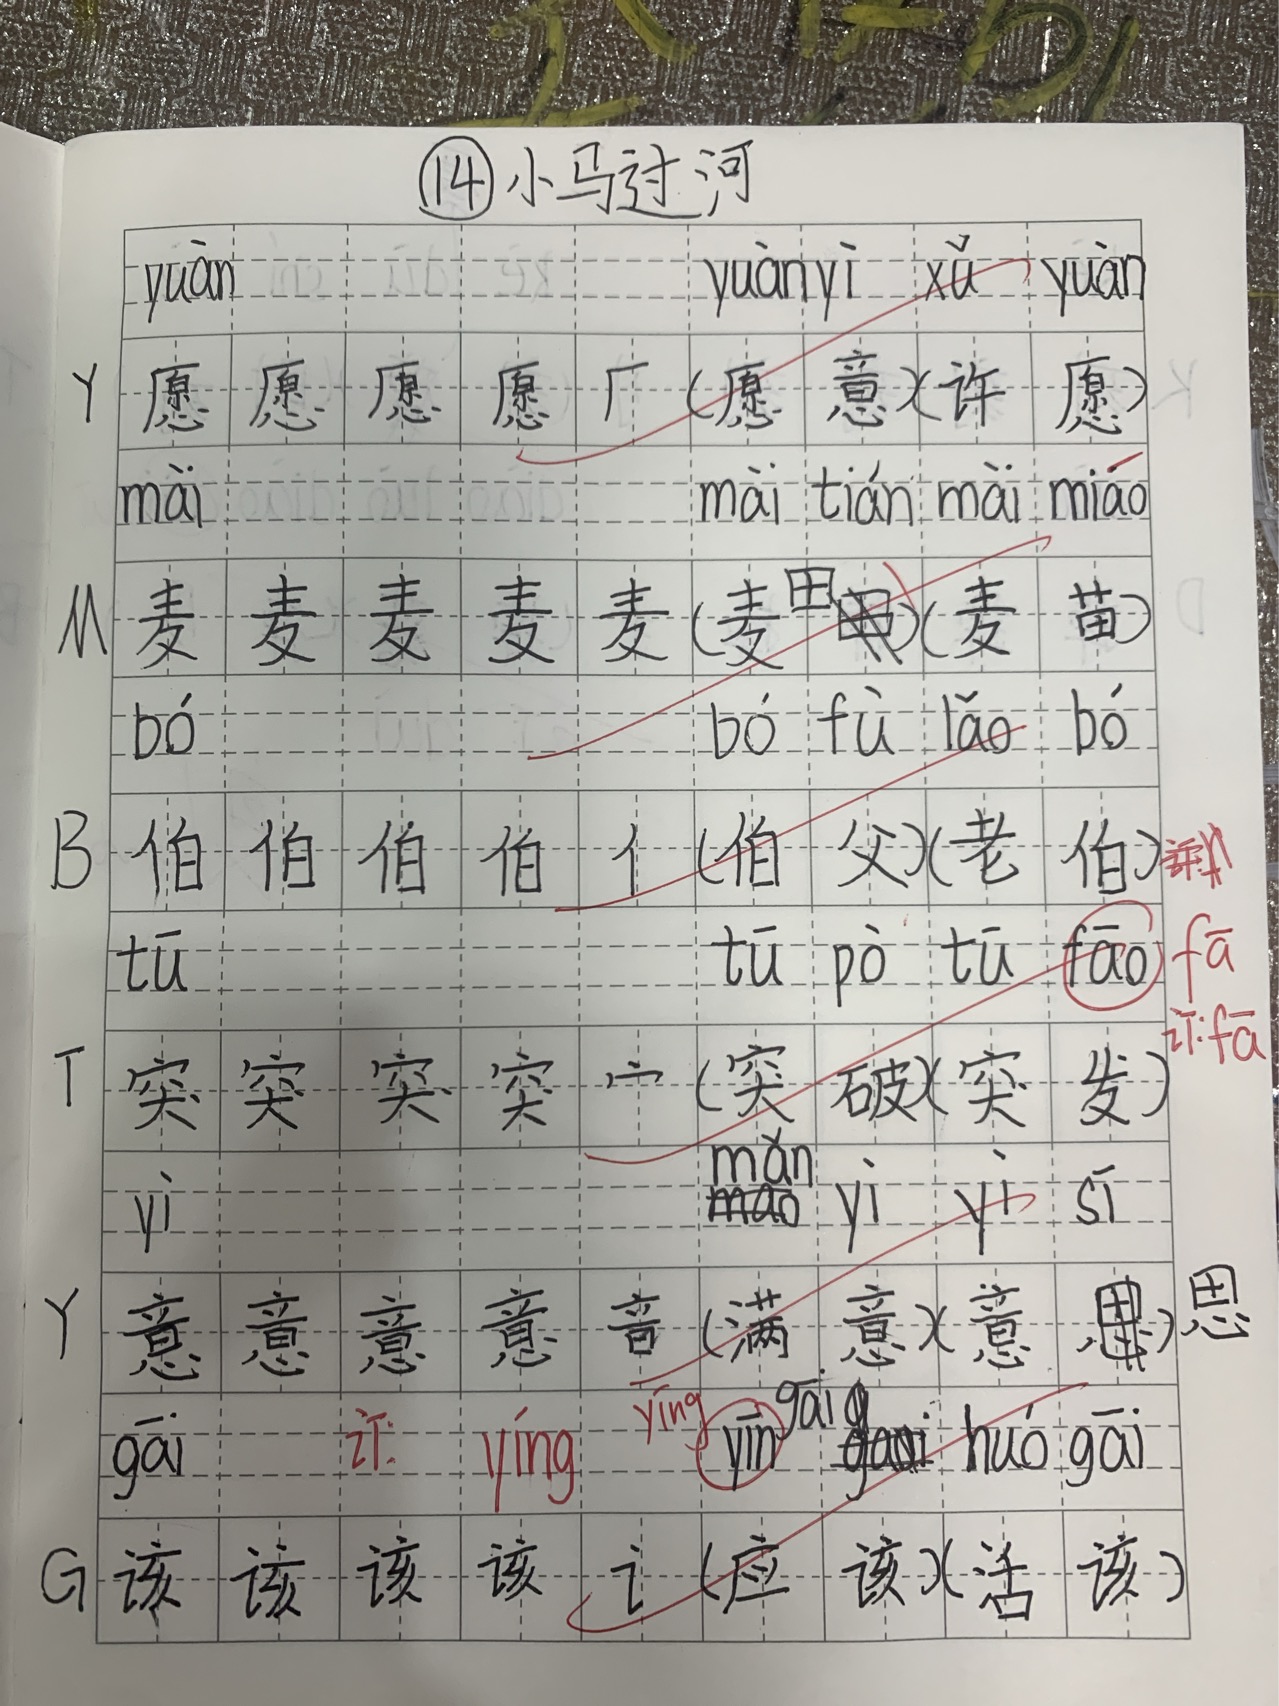 ⑭小马过河
yuàn yuàn yì xǔ yuàn
Y 愿 愿 愿 愿 厂 (愿 意)(许 愿)
mài mài tián mài miáo
M 麦 麦 麦 麦 麦 (麦 田)(麦 苗)
bó bó fù lǎo bó
B 伯 伯 伯 伯 亻 (伯 父)(老 伯)
tū tū pò tū fāo fā
订:fā
T 突 突 突 突 宀 (突 破)(突 发)
yì mǎn yì yì sī
Y 意 意 意 意 音 (满 意)(意 思) 思
gāi 订: yíng yīng yīn gāi huó gāi
G 该 该 该 该 讠 (应 该)(活 该)